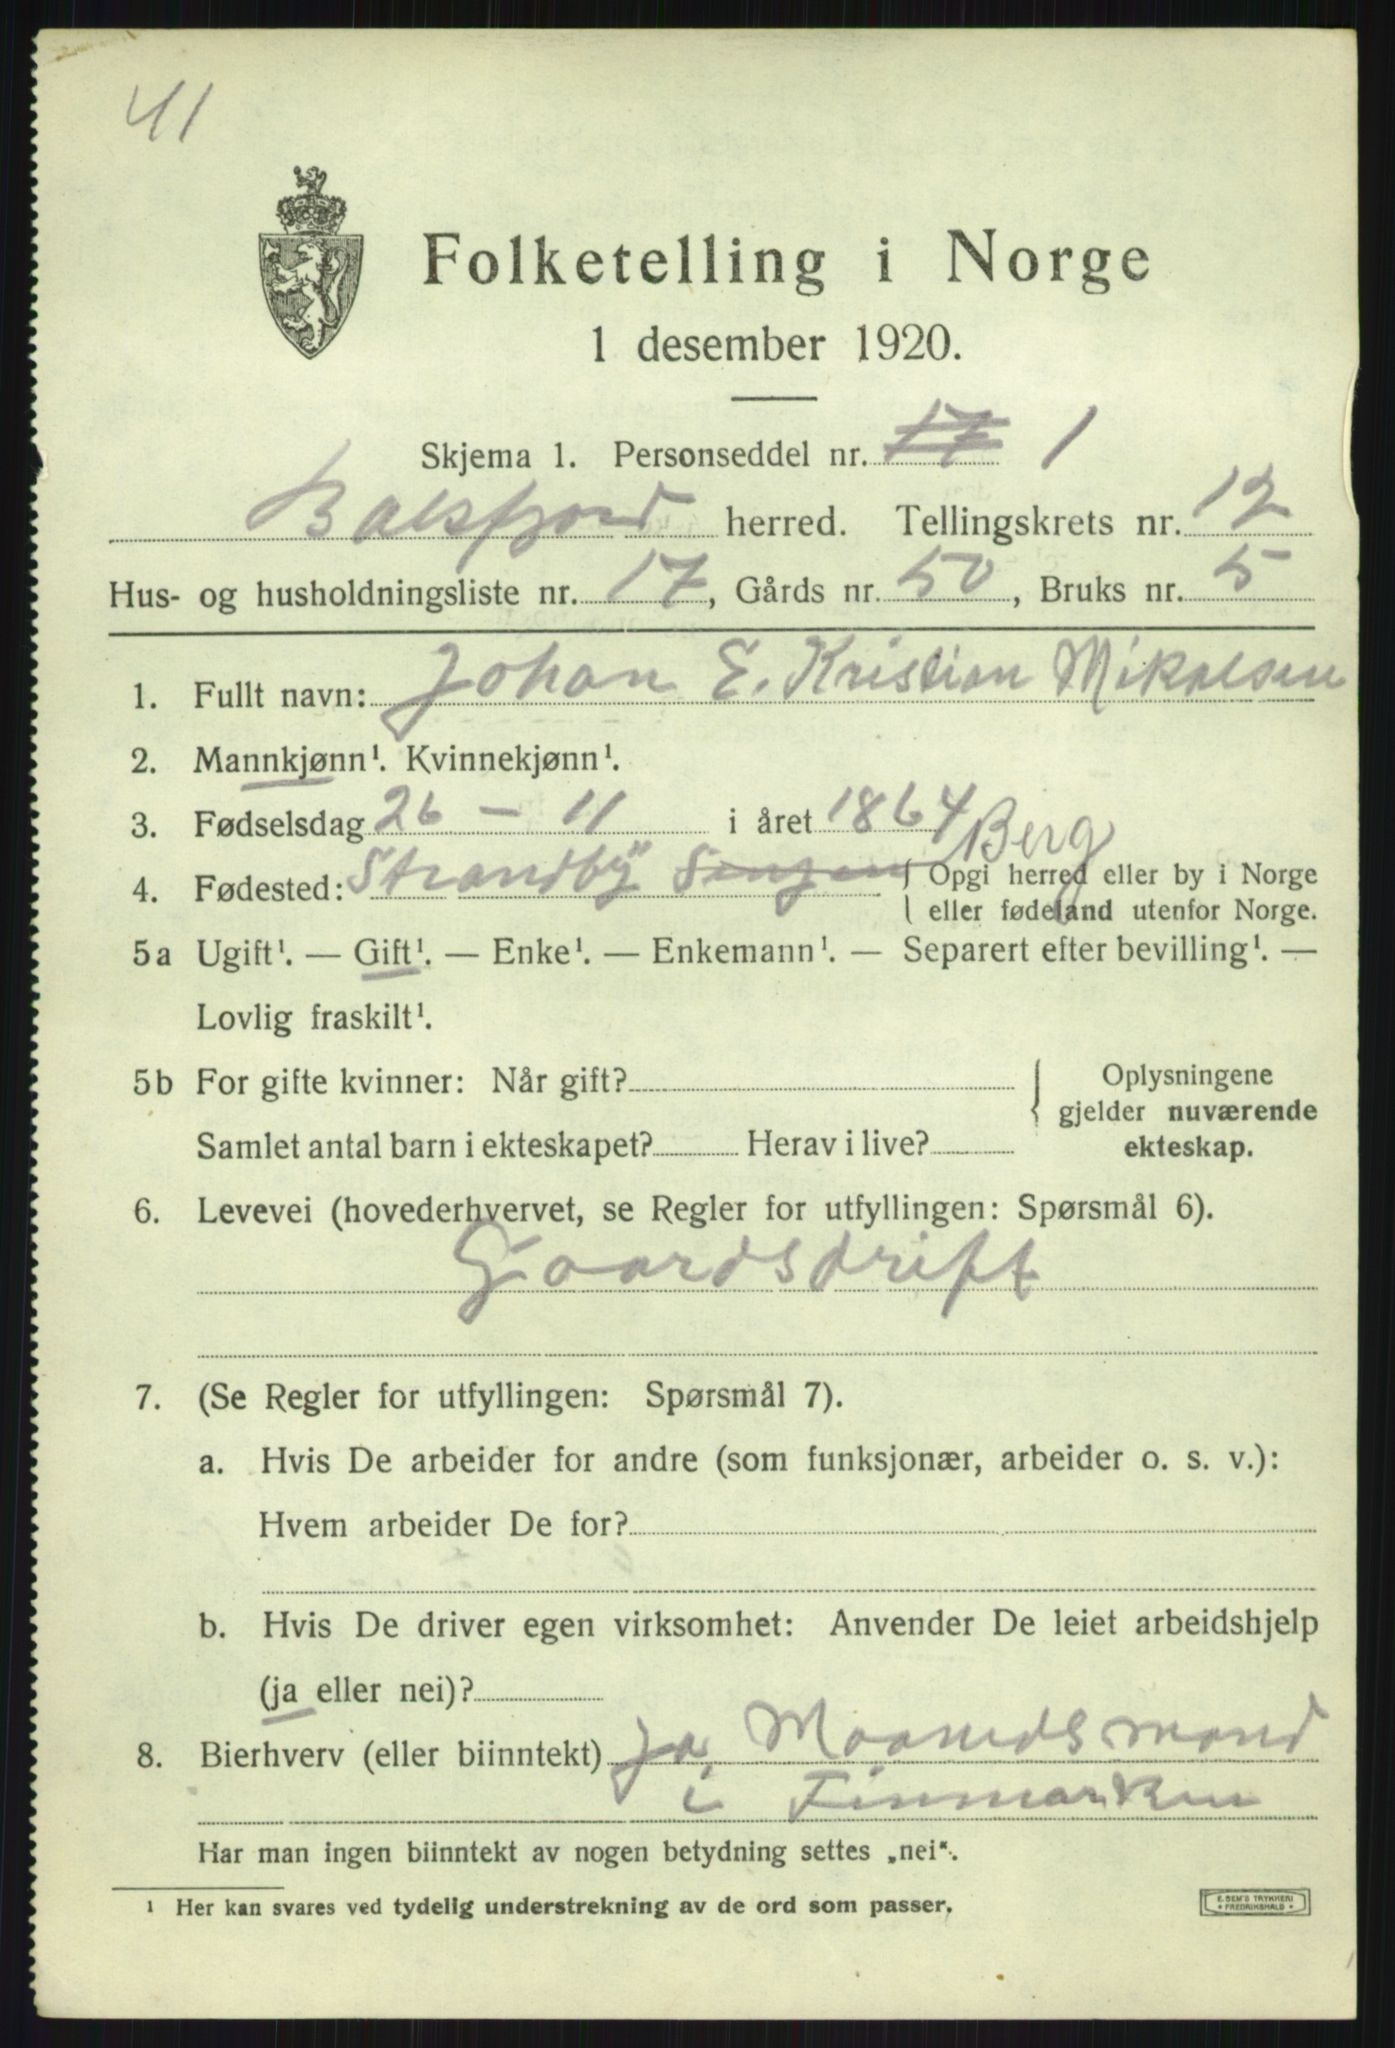 41
Folketelling i Norge
1 desember 1920.
Skjema 1. Personseddel nr. 17 1
Balsfjord herred. Tellingskrets nr. 12
Hus- og husholdningsliste nr. 17, Gårds nr. 50, Bruks nr. 5
1. Fullt navn: Johan E. Kristian Mikalsen
2. Mannkjønn¹. Kvinnekjønn¹.
3. Fødselsdag 26 - 11 i året 1864
4. Fødested: Strandby Senjen Berg { Opgi herred eller by i Norge
eller fødeland utenfor Norge.
5a Ugift¹. — Gift¹. — Enke¹. — Enkemann¹. — Separert efter bevilling¹. —
Lovlig fraskilt¹.
5b For gifte kvinner: Når gift? { Oplysningene
gjelder nuværende
Samlet antal barn i ekteskapet? Herav i live? ekteskap.
6. Levevei (hovederhvervet, se Regler for utfyllingen: Spørsmål 6).
Gaardsdrift
7. (Se Regler for utfyllingen: Spørsmål 7).
a. Hvis De arbeider for andre (som funksjonær, arbeider o. s. v.):
Hvem arbeider De for?
b. Hvis De driver egen virksomhet: Anvender De leiet arbeidshjelp
(ja eller nei)?
8. Bierhverv (eller biinntekt) Ja, Maanedsmand
i Finmarken
Har man ingen biinntekt av nogen betydning settes „nei".
¹ Her kan svares ved tydelig understrekning av de ord som passer.
E. SEM'S TRYKKERI
* FREDRIKSHALD *